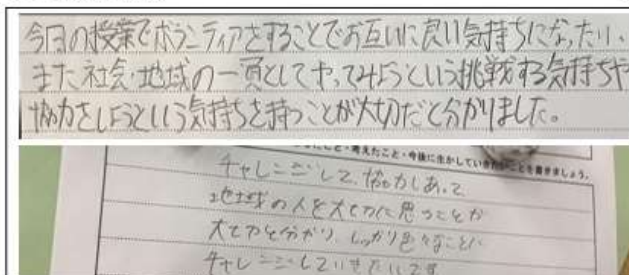 今回の授業でボランティアをすることでお互いに良い気持ちになったり、
また社会・地域の一員としてやってみようという挑戦する気持ちや
協力をしようという気持ちを持つことが大切だと分かりました。
考えたこと・今後に生かしていきたいことを書きましょう。
チャレンジして、協力しあって
地域の人を大切に思うことが
大切と分かり、しっかり色々なことに
チャレンジしていきたいです